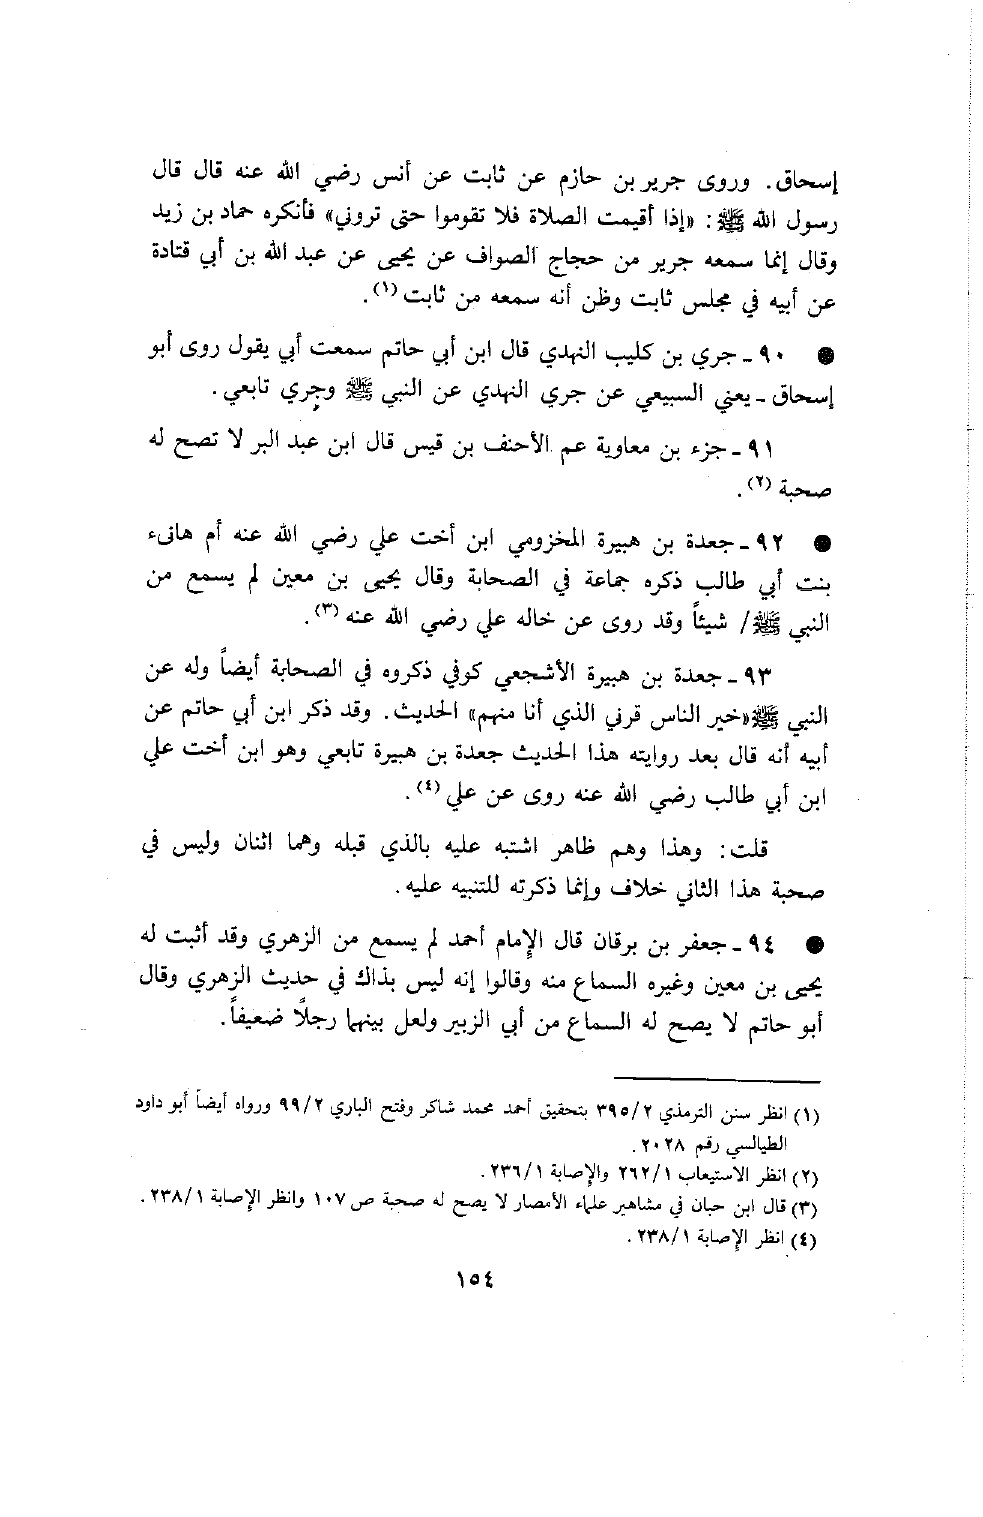 إسحاق. وروى جرير بن حازم عن ثابت عن أنس رضي الله عنه قال قال
رسول الله ﷺ: «إذا أقيمت الصلاة فلا تقوموا حتى تروني» فأنكره حماد بن زيد
وقال إنما سمعه جرير من حجاج الصواف عن يحيى عن عبد الله بن أبي قتادة
عن أبيه في مجلس ثابت وظن أنه سمعه من ثابت (١).
● ٩٠ - جري بن كليب النهدي قال ابن أبي حاتم سمعت أبي يقول روى أبو
إسحاق - يعني السبيعي عن جري النهدي عن النبي ﷺ وجري تابعي.
٩١ - جزء بن معاوية عم الأحنف بن قيس قال ابن عبد البر لا تصح له
صحبة (٢).
● ٩٢ - جعدة بن هبيرة المخزومي ابن أخت علي رضي الله عنه أم هانىء
بنت أبي طالب ذكره جماعة في الصحابة وقال يحيى بن معين لم يسمع من
النبي ﷺ/ شيئاً وقد روى عن خاله علي رضي الله عنه (٣).
٩٣ - جعدة بن هبيرة الأشجعي كوفي ذكروه في الصحابة أيضاً وله عن
النبي ﷺ «خير الناس قرني الذي أنا منهم» الحديث. وقد ذكر ابن أبي حاتم عن
أبيه أنه قال بعد روايته هذا الحديث جعدة بن هبيرة تابعي وهو ابن أخت علي
ابن أبي طالب رضي الله عنه روى عن علي (٤).
قلت: وهذا وهم ظاهر اشتبه عليه بالذي قبله وهما اثنان وليس في
صحبة هذا الثاني خلاف وإنما ذكرته للتنبيه عليه.
● ٩٤ - جعفر بن برقان قال الإمام أحمد لم يسمع من الزهري وقد أثبت له
يحيى بن معين وغيره السماع منه وقالوا إنه ليس بذاك في حديث الزهري وقال
أبو حاتم لا يصح له السماع من أبي الزبير ولعل بينهما رجلًا ضعيفاً.
(١) انظر سنن الترمذي ٣٩٥/٢ بتحقيق أحمد محمد شاكر وفتح الباري ٩٩/٢ ورواه أيضاً أبو داود
الطيالسي رقم ٢٠٢٨.
(٢) انظر الاستيعاب ٢٦٢/١ والإصابة ٢٣٦/١.
(٣) قال ابن حبان في مشاهير علماء الأمصار لا يصح له صحبة ص ١٠٧ وانظر الإصابة ٢٣٨/١.
(٤) انظر الإصابة ٢٣٨/١.
١٥٤